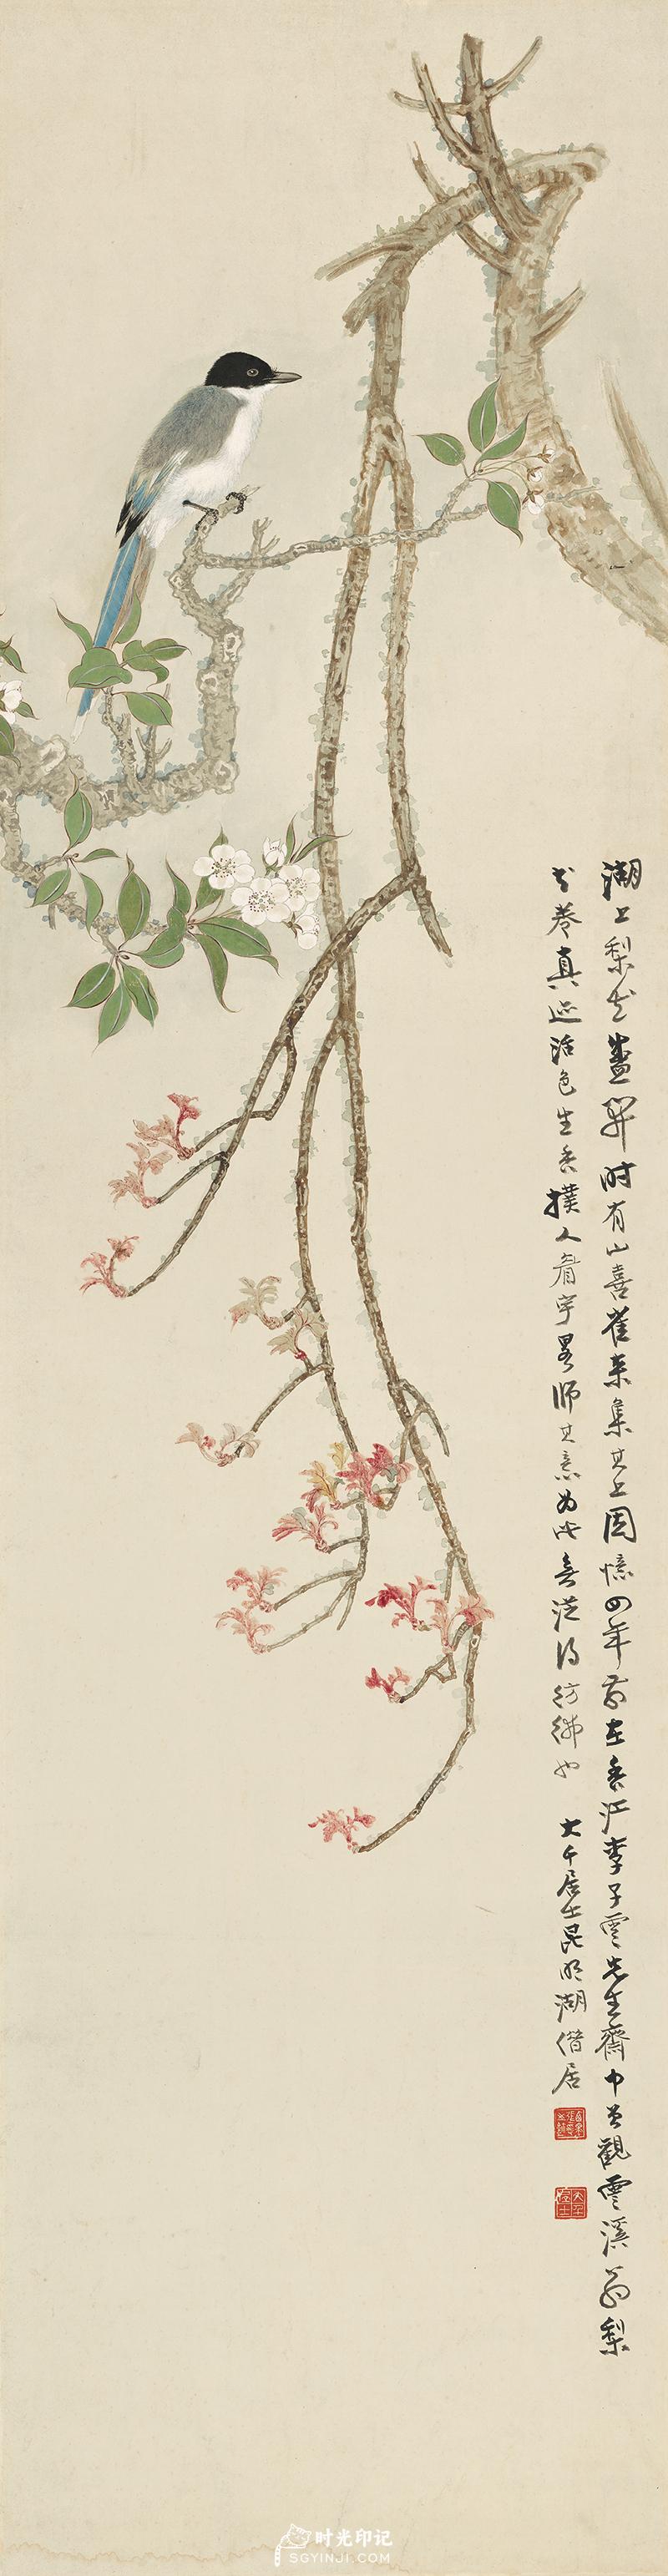 湖上梨花盛开时有山喜雀来集其上因忆四年前在香江李子云先生斋中曾观云溪翁梨
花卷真迹活色生香扑人眉宇略师其意为此无从得仿佛也 大千居士昆明湖借居
大千居士
时光印记
SGYINJI.COM